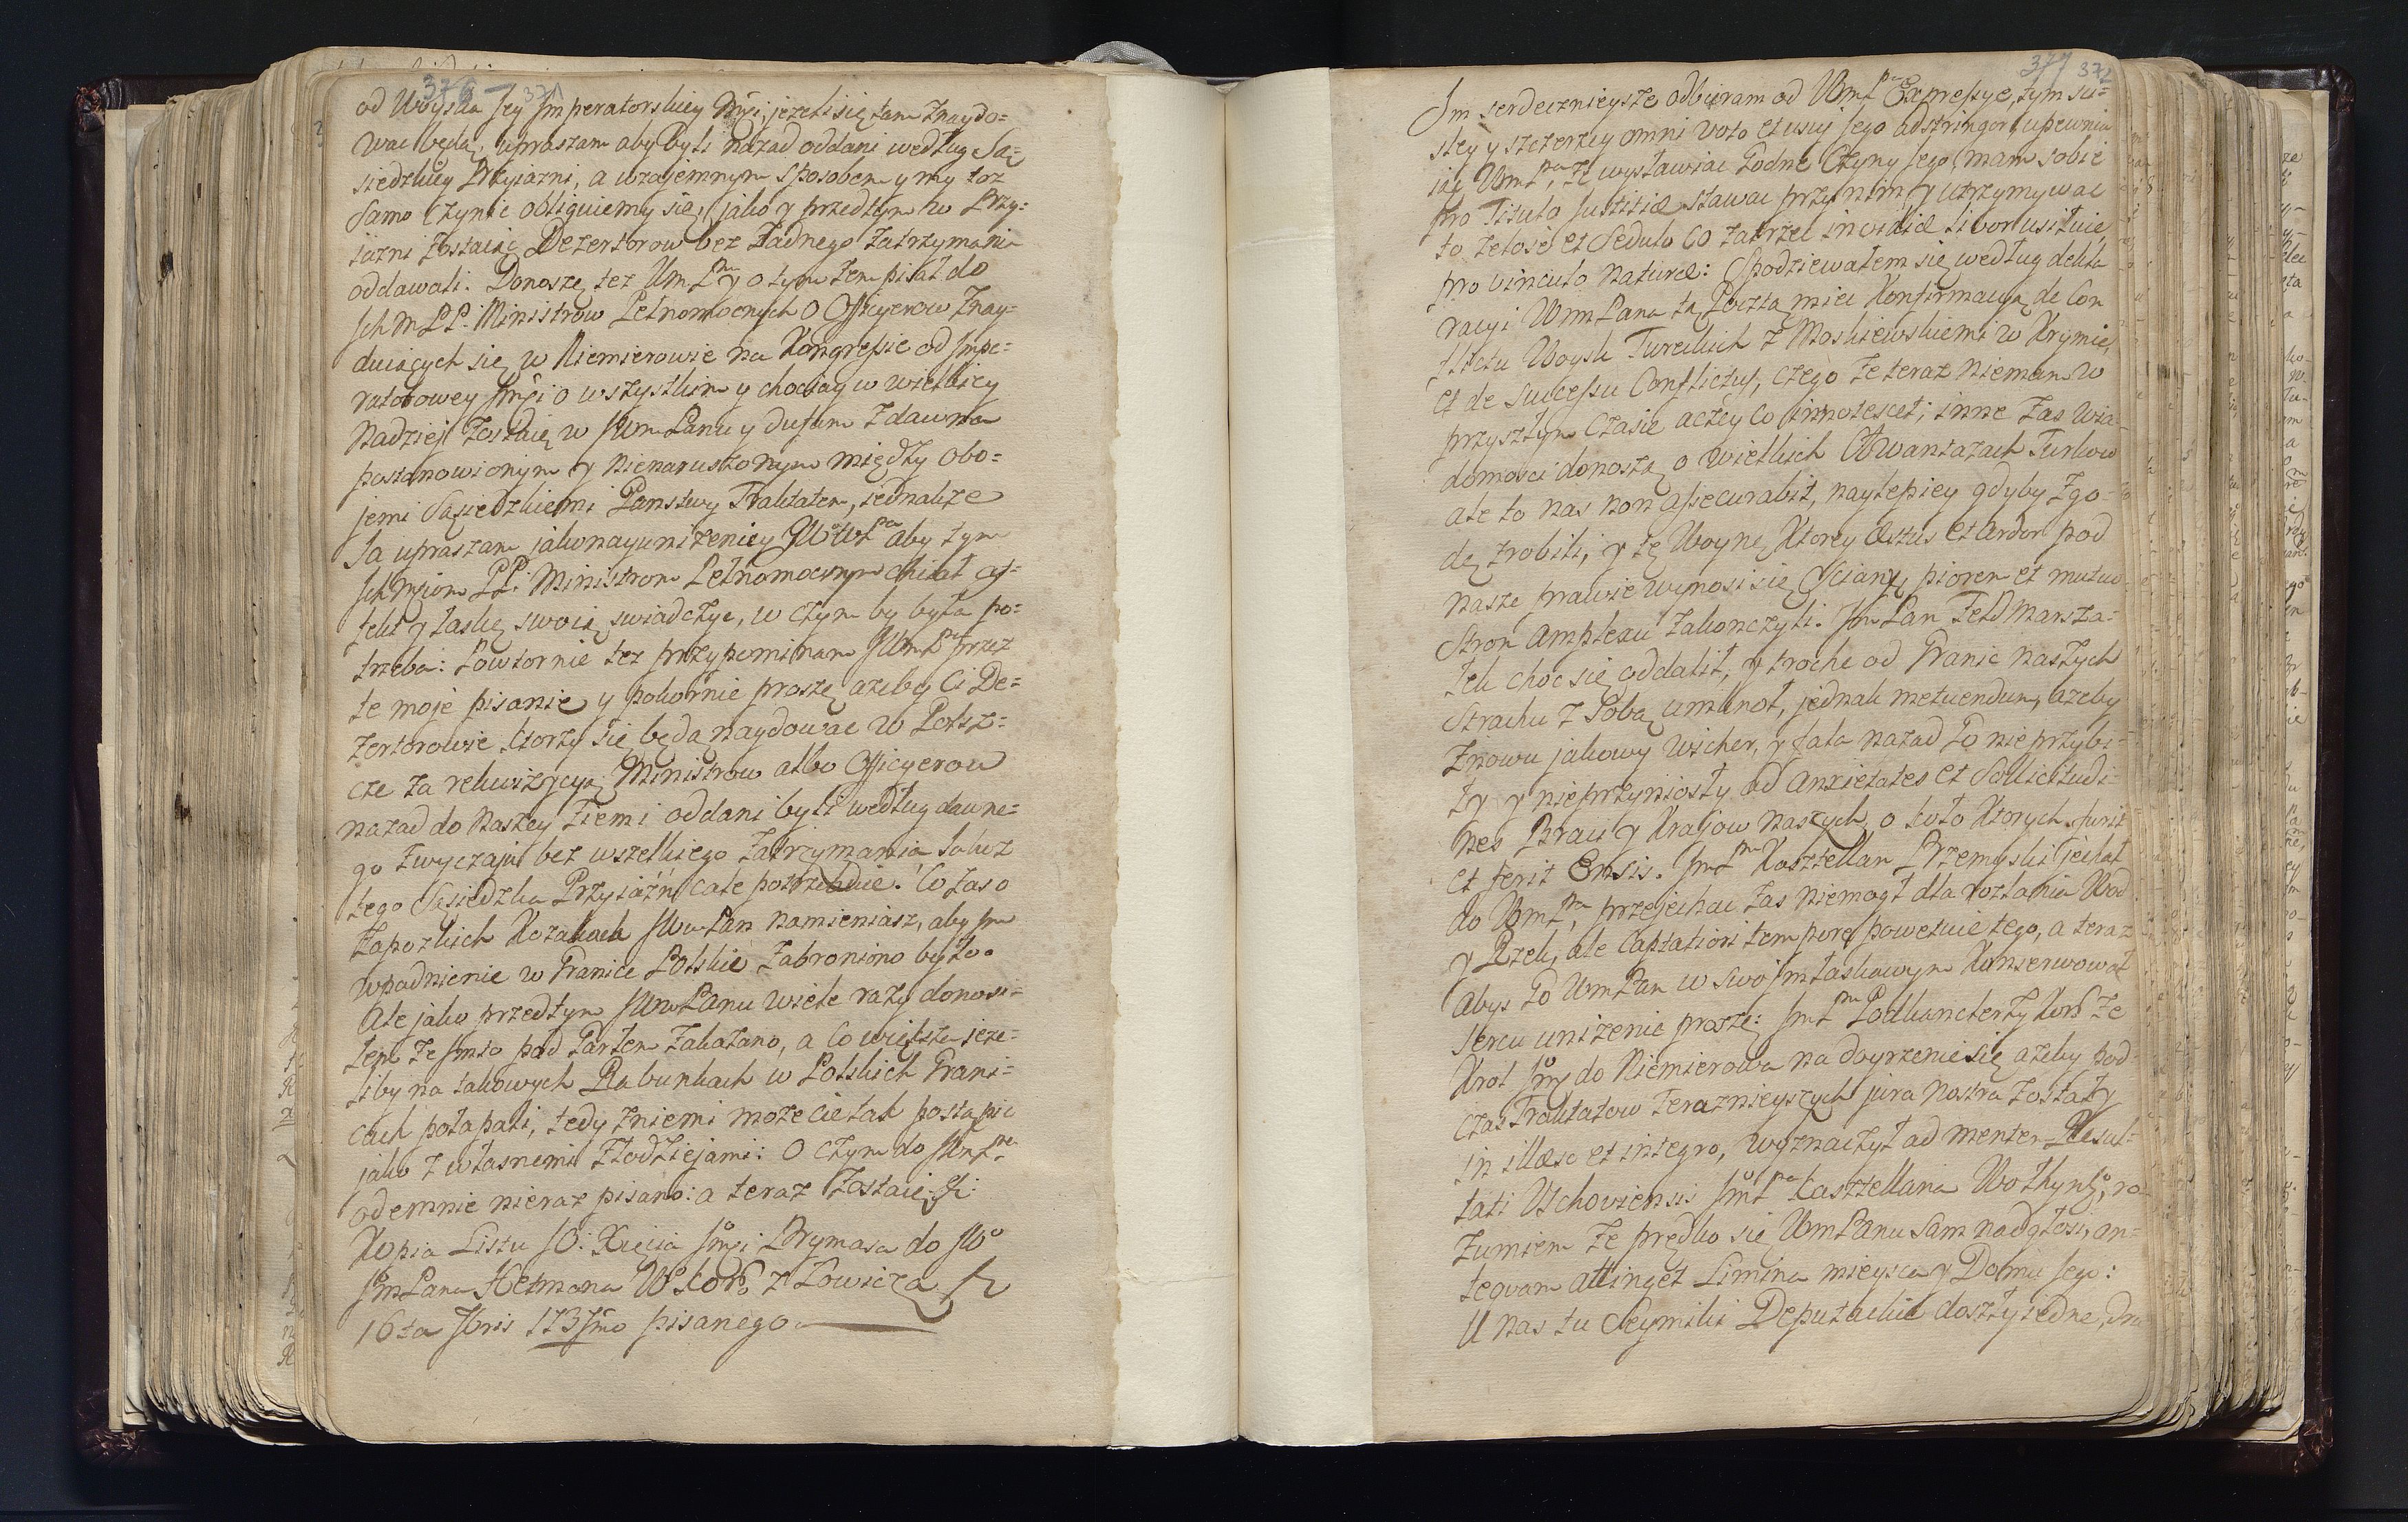 376 - 371
od Woyska Jey Jmperatorskiey Mci, jezeli się tam znaydo=
wac będą, upraszam aby Byli nazad oddani według Są=
siedzkiey Przyiazni, a wzajemnym sposobem y my toz
samo czynic obliguiemy się, jako y przedtym w Przy=
iazni zostaiąc Dezertorow bez zadnego zatrzymania
oddawali. Donoszę tez WmPnu y o tym zem pisał do
Jch M PP. Ministrow Pełnomocnych o Officyerow znay=
duiących się w Niemierowie na Kongressie od Jmpe=
ratorowey Jmci o wszystkim y chociay w wielkiey
nadziei zostaię w JWmPanu y dufam zdawna
postanowionym y nienaruszonym między obo=
jemi Sąsiedzkiemi Panstwy Traktatem, iednakze
Ja upraszam jaknayunizeniey JWWPna aby tym
Jch Mciom PP. Ministrom Pełnomocnym chciał af=
fekt y łaskę swoię swiadczyc, w czym by była po=
trzeba: Powtornie tez przypominam JWmPu przez
te moje pisanie y pokornie proszę azeby Ci De=
zertorowie ktorzy się będą naydowac w Polsz=
cze za rekwizycyą Ministrow albo Officyerow
nazad do naszey ziemi oddani byli według dawne=
go zwyczaju bez wszelkiego zatrzymania jakoz
tego Sąsiedzka Przyiazń cale potrzebuie. Co zas o
Zaporzkich Kozakach JWmPan namieniasz, aby Jm
wpadnienie w Granice Polskie zabroniono było.
Ale jako przedtym JWmPanu wiele razy donosi=
łem ze Jmto pod Garłem zakazano, a co większa jeze=
liby na takowych Rabunkach w Polskich Grani=
cach połapali, tedy zniemi mozecie tak postąpic
jako z własnemi Złodziejami: O czym do JWmPna
odemnie nieraz pisano: a teraz zostaię. &c:
Kopia Listu JO: Xięcia Jmci Prymasa do JWo
JmPana Hetmana WoKoro z Łowicza d
16ta 7bris 1737mo pisanego.
377 372
Jm serdecznieysze odbieram od WmPna Expressye, tym su=
sley y szczerzey omni voto et usu jego adstringor, upewnia
iąc WmPna, ze wystawiac Godne Czyny Jego, mam sobie
pro Titulo Justitiæ stawac przy nim, y utrzymywac
to zelose et sedulo co zatrzec invidiæ livor usiłuie,
pro vinculo naturæ: Spodziewałem się według dekla
racyi WmPana tą Pocztą miec Konfirmacyą de Con
flictu Woysk Tureckich z Moskiewskiemi w Krymie,
et de successu Conflictus, czego ze teraz niemam w
przyszłym czasie aczey co innotescet; inne zas wia
domosci donoszą o wielkich Awantazach Turkow
ale to nas non assecurabit, naylepiey gdyby zgo=
dę zrobili, y tę Woynę ktorey æstus et ardor pod
nasze prawie wynosi się Sciany, piorem et mutuo
stron amplexu zakonczyli. Jm Pan Feld Marsza=
łek choc się oddalił, y troche od Granic naszych
strachu z Sobą umknoł, jednak metuendum, azeby
znowu jakowy wicher, y fala nazad Go nie przybi=
ły y nieprzyniosły ad anxietates et sollicitudi=
nes Braci y Krajow naszych, o koło ktorych furit
et ferit Ensis. JmPn Kasztellan Przemyski jechał
do WmPna, przejechac zas niemogł dla rozlania Wod
y Rzek, ale captatiori tempore powetuie tego, a teraz
abys Go WmPan w swoim łaskawym Konserwował
sercu unizenie proszę: JmPn Podkanclerzy Koro ze
Krol Jmc do Niemierowa na doyrzenie się azeby pod=
czas Traktatow terazniejszych jura nostra zostały
in illæso et integro, wyznaczył ad mentem Resul=
tati Wschoviensis JmPna Kasztellana Wołynsgo, ro=
zumiem ze prędko się WmPanu sam nadgłosi, an=
tequam attinget limina mieysca y Domu Jego:
U nas tu Seymiki Deputackie doszły iedne, dru